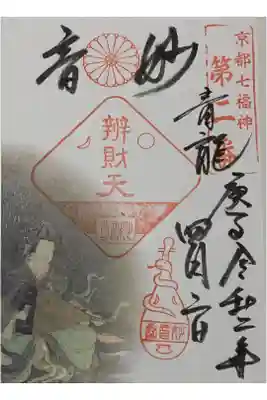 京都七福神
第二番
妙音
青龍
辨財天
庚子令和二年
四月